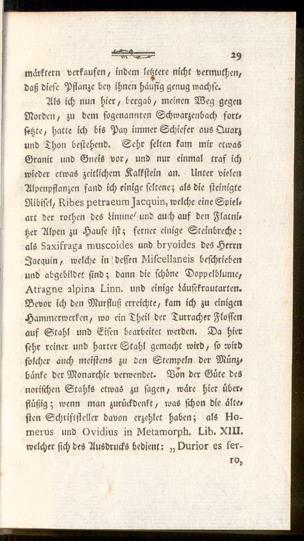 29
märktern verkaufen, indem letztere nicht vermuthen,
daß diese Pflanze bey ihnen häufig genug wachse.
Als ich nun hier, bergab, meinen Weg gegen
Norden, zu dem sogenannten Schwarzenbach fort-
setzte, hatte ich bis Pay immer Schiefer aus Quarz
und Thon bestehend. Sehr selten kam mir etwas
Granit und Gneis vor, und nur einmal traf ich
wieder etwas zeitlichem Kalkstein an. Unter vielen
Alpenpflanzen fand ich einige seltene; als die steinigte
Ribisel, Ribes petraeum Jacquin, welche eine Spiel-
art der rothen des Linnne' und auch auf den Flatni-
tzer Alpen zu Hause ist; ferner einige Steinbreche:
als Saxifraga muscoides und bryoides des Herrn
Jacquin, welche in dessen Miscellaneis beschrieben
und abgebildet sind; dann die schöne Doppelblume,
Atragne alpina Linn. und einige Läusekrautarten.
Bevor ich den Murfluß erreichte, kam ich zu einigen
Hammerwerken, wo ein Theil der Turracher Flossen
auf Stahl und Eisen bearbeitet werden. Da hier
sehr reiner und harter Stahl gemacht wird, so wird
solcher auch meistens zu den Stempeln der Münz-
bänke der Monarchie verwendet. Von der Güte des
norischen Stahls etwas zu sagen, wäre hier über-
flüßig; wenn man zurückdenkt, was schon die älte-
sten Schriftsteller davon erzehlet haben; als Ho-
merus und Ovidius in Metamorph. Lib. XIII.
welcher sich des Ausdrucks bedient: „Durior es fer-
ro,